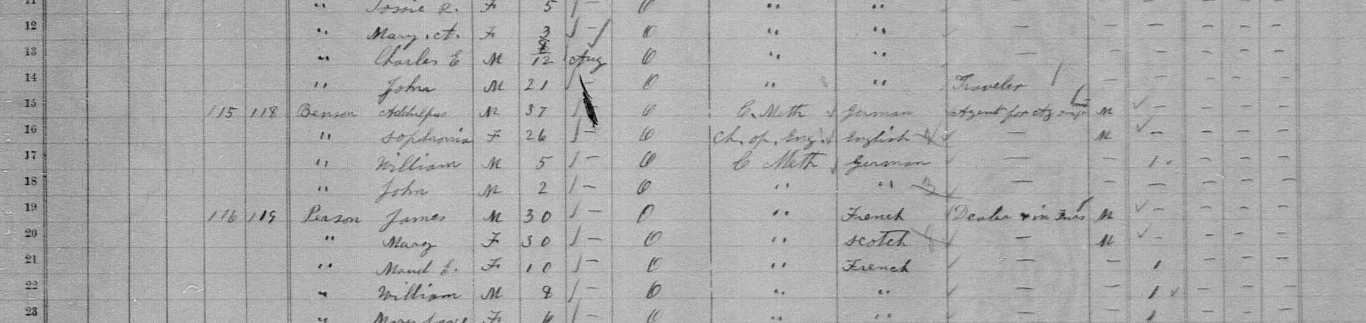 11 " Jossie R. F 5 / — O " " — — — — — —
12 " Mary. A. F 3 / — O " " — — — — — —
13 " Charles E M 8/12 Aug O " " — — — — — —
14 " John M 21 / — O " " Traveler — — — — — —
15 115 118 Benson M 37 / O C. Meth German Agent for Ag M — — — — —
16 " Sophronia F 26 / — O Ch. of. Eng. English — M — — — — —
17 " William M 5 / — O C Meth German — 1 — — — —
18 " John M 2 / — O " " — — — — — —
19 116 119 Pearson James M 30 / — O " French Dealer in Furs M — — — — —
20 " Mary F 30 / — O " Scotch — M — — — — —
21 " Maud E. F 10 / — O " French — 1 — — — —
22 " William M 8 / — O " " — 1 — — — —
23 " Mary Jane F 6 / — O " " — 1 — — — —